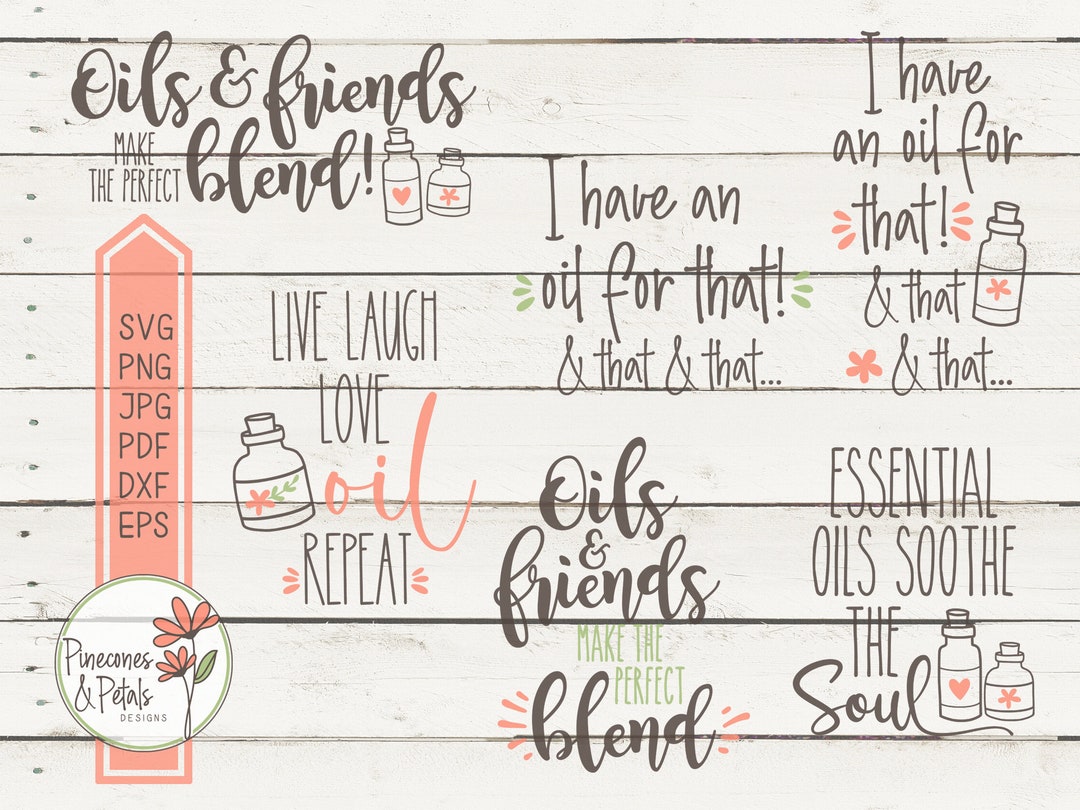 Oils & friends
MAKE
THE PERFECT
blend!
I have
an oil for
that!
& that
& that...
I have an
oil for that!
& that & that...
SVG
PNG
JPG
PDF
DXF
EPS
LIVE LAUGH
LOVE
oil
REPEAT
Oils
&
friends
MAKE THE
PERFECT
blend
ESSENTIAL
OILS SOOTHE
THE
Soul
Pinecones
& Petals
DESIGNS